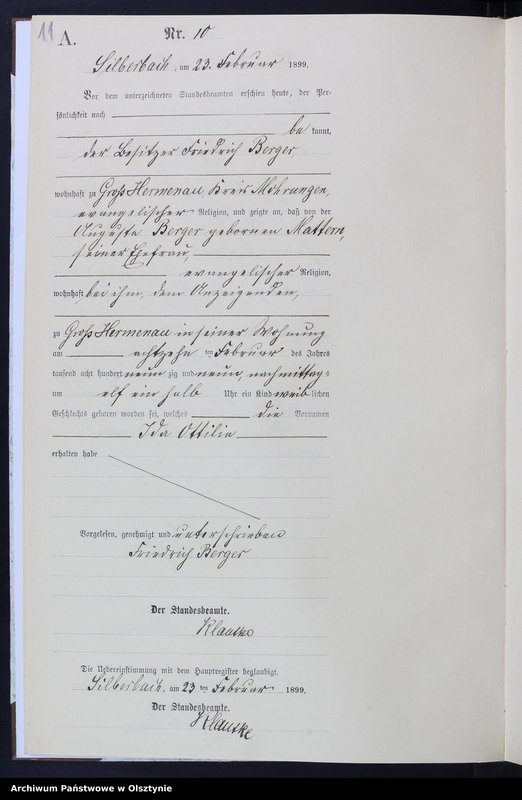 11
A.
Nr. 10
Silberbach, am 23. Februar 1899.
Vor dem unterzeichneten Standesbeamten erschien heute, der Per-
sönlichkeit nach
be kannt,
der Besitzer Friedrich Berger,
wohnhaft zu Groß Hermenau Kreis Mohrungen,
evangelischer Religion, und zeigte an, daß von der
Auguste Berger gebornen Mattern,
seiner Ehefrau,
evangelischer Religion,
wohnhaft bei ihm, dem Anzeigenden,
zu Groß Hermenau in seiner Wohnung
am achtzehn ten Februar des Jahres
tausend acht hundert neun zig und neun, nachmittag s
um elf ein halb Uhr ein Kind weib lichen
Geschlechts geboren worden sei, welches die Vornamen
Ida Ottilie
erhalten habe
Vorgelesen, genehmigt und unterschrieben
Friedrich Berger
Der Standesbeamte.
Klautke
Die Uebereinstimmung mit dem Hauptregister beglaubigt.
Silberbach, am 23 ten Februar 1899.
Der Standesbeamte.
Klautke
Archiwum Państwowe w Olsztynie